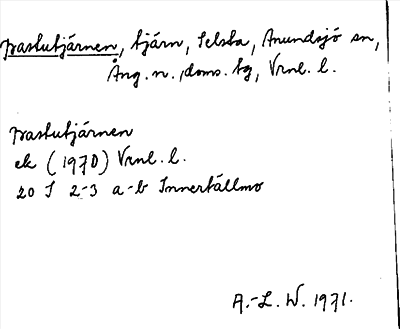 Prastutjärnen, tjärn, Selsta, Anundsjö sn,
Ång. n. doms. tg, Vrnl. l.
Prastutjärnen
ek (1970) Vrnl. l.
20 I 2-3 a-b Innertällmo
A.-L. W. 1971.